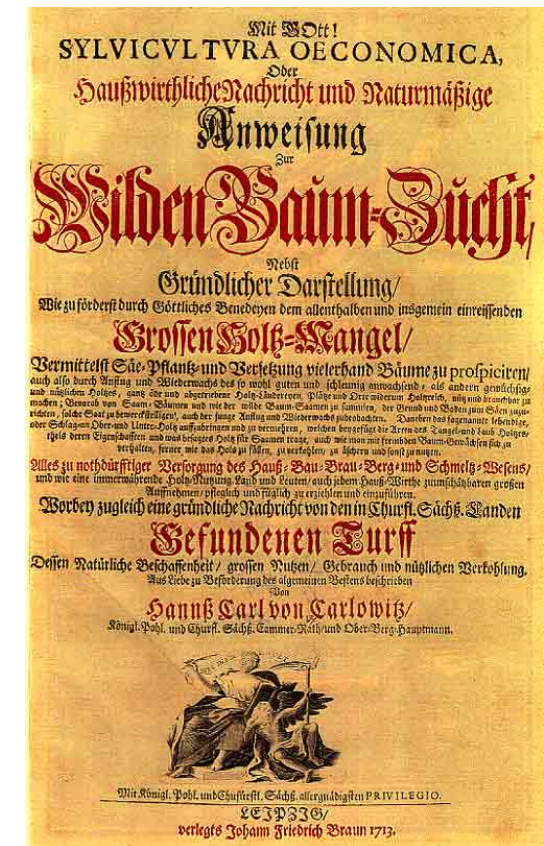 Mit GOtt!
SYLVICVLTVRA OECONOMICA,
Oder
Haußwirthliche Nachricht und Naturmäßige
Anweisung
Zur
Wilden Baum-Zucht,
Nebst
Gründlicher Darstellung/
Wie zu förderst durch Göttliches Benedeyen dem allenthalben und insgemein einreissenden
Grossen Holtz-Mangel/
Vermittelst Säe-Pflantz- und Versetzung vielerhand Bäume zu prospiciren/
auch also durch Anflug und Wiederwachs des so wohl guten und schleunig anwachsend, als andern gewüchsig-
und nützlichen Holtzes, gantz öde und abgetriebene Holtz-Ländereyen, Plätze und Orte wiederum Holtzreich, nütz und brauchbar zu
machen; Benorab von Saam-Bäumen und wie der wilde Baum-Saamen zu sammlen, der Grund und Boden zum Säen zuzu-
richten, solche Saat zu bewerckstelligen, auch der junge Anflug und Wiederwachs zu beobachten. Daneben das sogenannte lebendige,
oder Schlag-an Ober- und Unter-Holtz aufzubringen und zu vermehren, welchen beygefügt die Arten des Tangel- und Laub-Holtzes,
theils deren Eigenschafften und was besagtes Holtz für Saamen trage, auch wie man mit frembden Baum-Gewächsen sich zu
verhalten, ferner wie das Holtz zu fällen, zu verkohlen, zu äschern und sonst zu nutzen.
Alles zu nothdürfftiger Versorgung des Hauß-Bau-Brau-Berg- und Schmeltz-Wesens/
und wie eine immerwährende Holtz-Nutzung, Land und Leuten/ auch jedem Hauß-Wirthe zu unschätzbaren großen
Auffnehmen/ pfleglich und füglich zu erziehlen und einzuführen.
Worbey zugleich eine gründliche Nachricht von den in Churfl. Sächß. Landen
Gefundenen Turff
Dessen Natürliche Beschaffenheit/ grossen Nutzen/ Gebrauch und nützlichen Verkohlung.
Aus Liebe zu Beförderung des algemeinen Bestens beschrieben
Von
Hannß Carl von Carlowitz/
Königl. Pohl. und Churfl. Sächß. Cammer-Rath/ und Ober-Berg-Hauptmann.
Mit Königl. Pohl. und Chufürstl. Sächß. allergnädigsten PRIVILEGIO.
LEIPZIG/
verlegts Johann Friedrich Braun 1713.